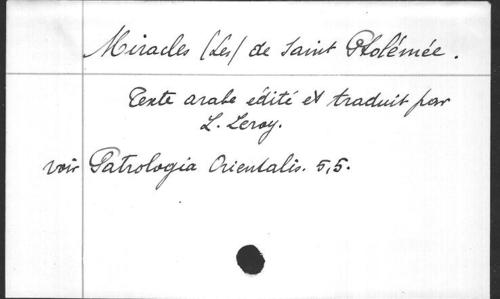 Miracles (Les) de Saint Ptolémée.
Texte arabe édité et traduit par
L. Leroy.
voir Patrologia Orientalis. 5,5.